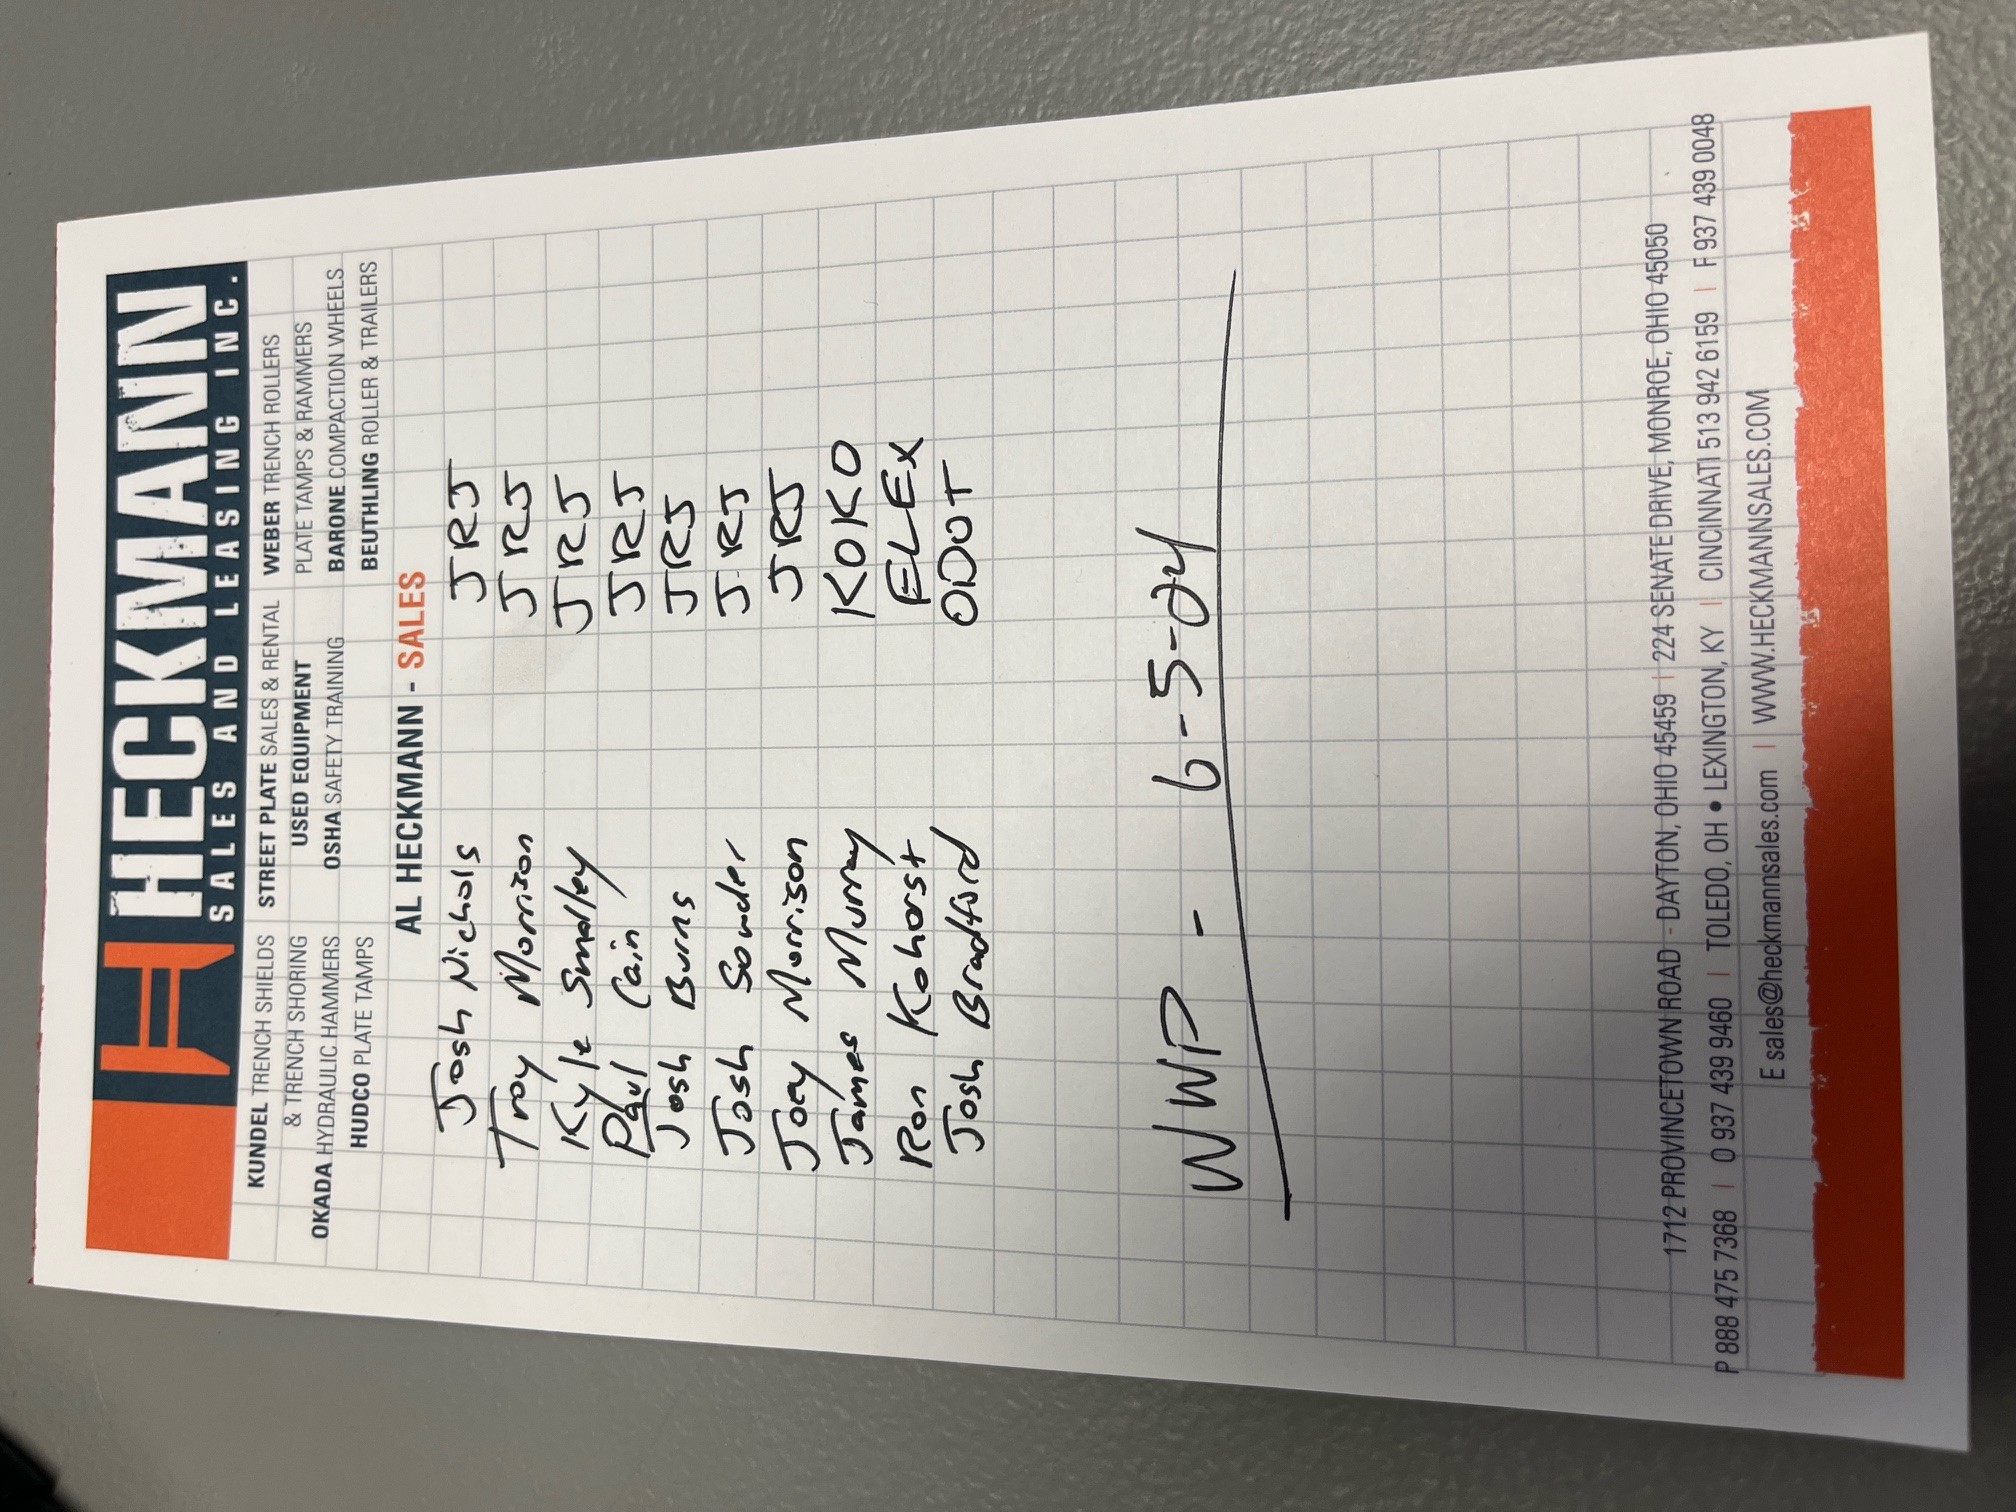 HECKMANN
SALES AND LEASING INC.
KUNDEL TRENCH SHIELDS
& TRENCH SHORING
OKADA HYDRAULIC HAMMERS
HUDCO PLATE TAMPS
STREET PLATE SALES & RENTAL
USED EQUIPMENT
OSHA SAFETY TRAINING
WEBER TRENCH ROLLERS
PLATE TAMPS & RAMMERS
BARONE COMPACTION WHEELS
BEUTHLING ROLLER & TRAILERS
AL HECKMANN - SALES
Josh Nichols JRJ
Troy Morrison JRJ
Kyle Smalley JRJ
Paul Cain JRJ
Josh Burns JRJ
Josh Sowder JRJ
Joey Morrison JRJ
James Murray KOKO
Ron Kohorst ELEX
Josh Bradford ODOT
WWP - 6-5-24
1712 PROVINCETOWN ROAD - DAYTON, OHIO 45459 | 224 SENATE DRIVE, MONROE, OHIO 45050
P 888 475 7368 | O 937 439 9460 | TOLEDO, OH • LEXINGTON, KY | CINCINNATI 513 942 6159 | F 937 439 0048
E sales@heckmannsales.com | WWW.HECKMANNSALES.COM